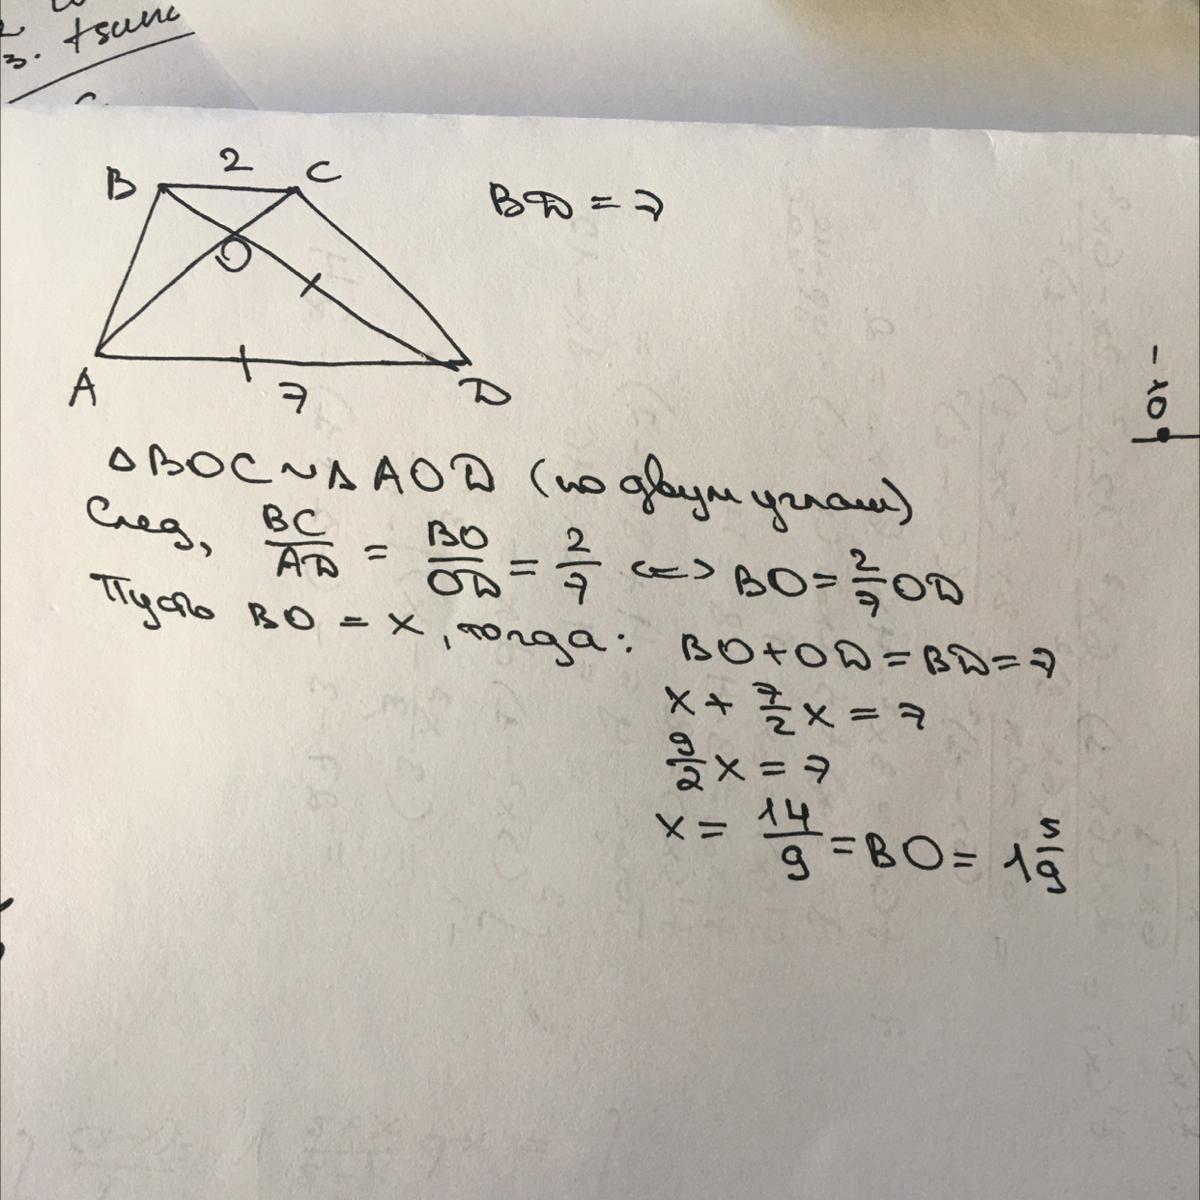 3. tsunc
2
B
C
BD = 7
O
A
7
D
△BOC ~ △AOD (по двум углам)
След, BC/AD = BO/OD = 2/7 <=> BO = 2/7 OD
Пусть BO = x, тогда: BO + OD = BD = 7
x + 7/2 x = 7
9/2 x = 7
x = 14/9 = BO = 1 5/9